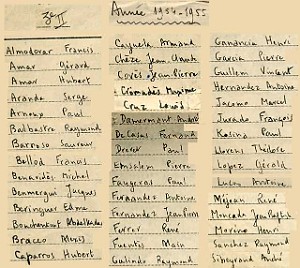 3e II
Almodovar Francis
Amar Gérard
Amar Hubert
Aranda Serge
Arnoux Paul
Balbastra Raymond
Barroso Sauveur
Bellod Francis
Benaridès Michel
Benmergui Jacques
Beringues Edme
Bouchenkout Abdelkader
Bracco Aloïs
Caparros Hubert
Année 1954-1955
Cayuela Armand
Chèze Jean
Covès Jean Pierre
Cromadès Maxime
Cruz Louis
Damermant André
De Casas Fernand
Drevet Paul
Emsalem Pierre
Faugeras Paul
Fernandez Antoine
Fernandez Jean Pierre
Ferrer René
Fuentès Alain
Galindo Raymond
Ganancia Henri
Garcia Pierre
Guillem Vincent
Hernandez Antoine
Jacomo Marcel
Jurado François
Kosina Paul
Llorens Théodore
Lopez Gérald
Lucas Antoine
Méjean René
Moncada Jean Baptiste
Moreno Henri
Sanchez Raymond
Singeyrand André